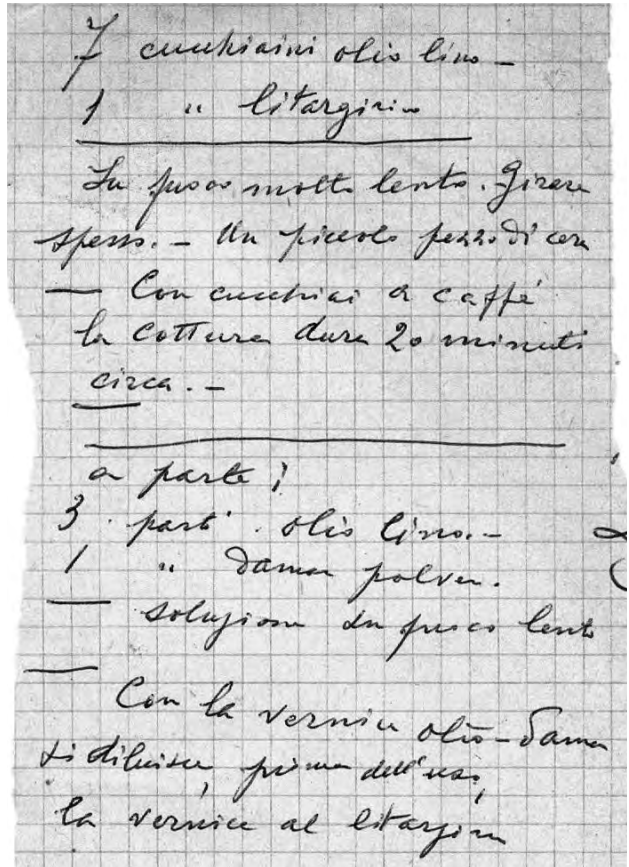 7 cucchiaini olio lino -
1 " litargirio
Su fuoco molto lento. Girare
spesso. - Un piccolo pezzo di cera
— Con cucchiai a caffé
la cottura dura 20 minuti
circa. -
a parte ;
3 parti olio lino. -
1 " damar polver.
— soluzione su fuoco lento
— Con la vernice olio-damar
si diluisce, prima dell'uso,
la vernice al litargirio